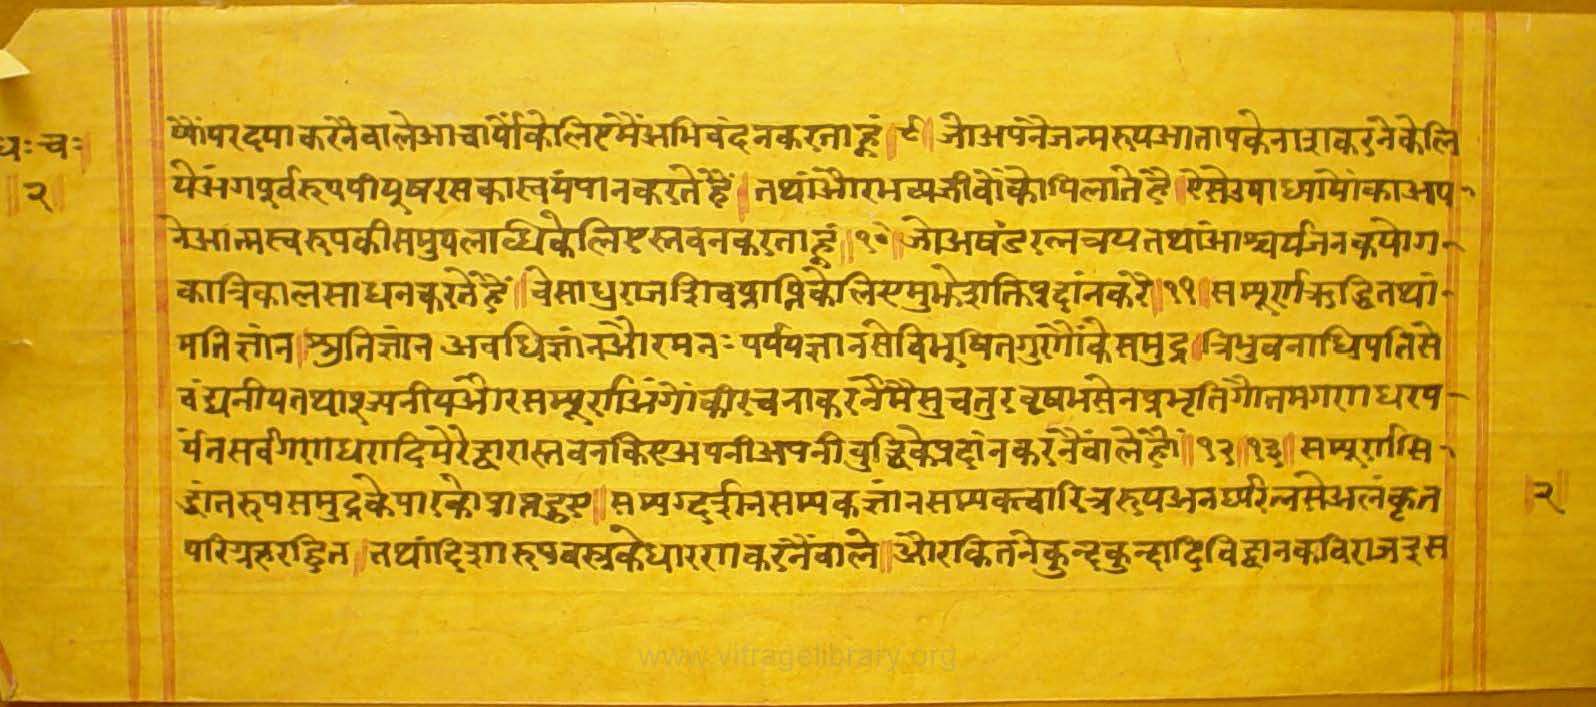 ष्योंपरदयाकरनेंवालेआचार्योंकेलिएमैंअभिवंदनकरताहूं॥९॥जोअपनेंजन्मरूपआतापकेनाशकरनेंकेलि
धः चः
येअंगपूर्वरूपपीयूषरसकास्वयंपानकरतेंहैं।तथांऔरभव्यजीवोंकोपिलातेंहै।ऐसेउपाध्यायोंकाआप-
॥२॥
नेआत्मस्वरूपकीसमुपलाब्धिकेलिएस्तवनकरताहूं॥१०॥जोअषंडरत्नत्रयतथांआश्चर्यजनकयोग-
कात्रिकालसाधनकरतेंहैं॥वेसाधुराजशिवप्राप्तिकेलिएमुझेशक्तिप्रदांनकरें॥११॥सम्पूर्णऋद्धितथां-
मतिज्ञांन।श्रुतिज्ञांन अवधिज्ञांनऔरमनः पर्ययज्ञानसेविभूषितगुणोंकेसमुद्र।त्रिभुवनाधिपतिसे
वंद्यनीयतथाश्अनीयऔरसम्पूर्णअंगोंकीरचनाकरनेंमैंसुचतुरवृषभसेनप्रभृतिगौतमगणधरप-
र्यंतसर्वगणधरादिमेरेद्वारास्तवनकिएअपनीअपनीबुद्धिकेप्रदांनकरंनेंवालेंहों॥१२॥१३॥सम्पूर्णसि-
द्धांतरूपसमुद्रकेपारकोप्राप्तहुए॥सम्यग्दर्शनसम्यकज्ञांनसम्यक्त्चारित्ररूपअनर्घ्यरत्नसेअलंकृत
॥२॥
परिग्रहरहित।तथांदिशारूपवस्त्रकेधारणकरंनेंवाले॥औरकितनेकुन्दकुन्दादिविद्वानकविराजइस
www.vitragelibrary.org